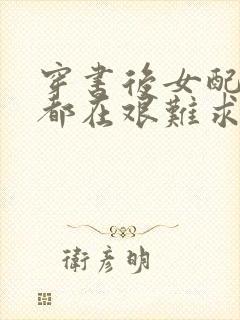 穿書後女配
都在艱難求
衛彥明